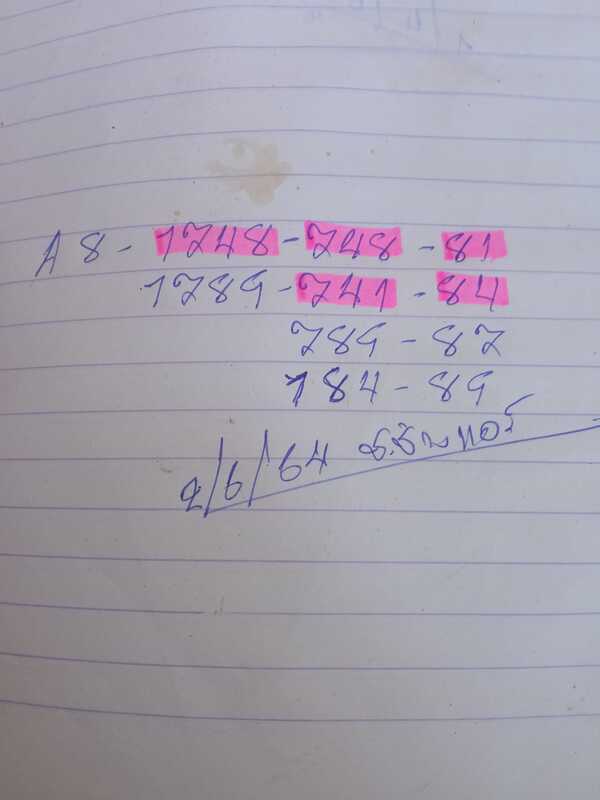 A8-1748-748-81
1789-741-84
789-87
184-89
2/6/64